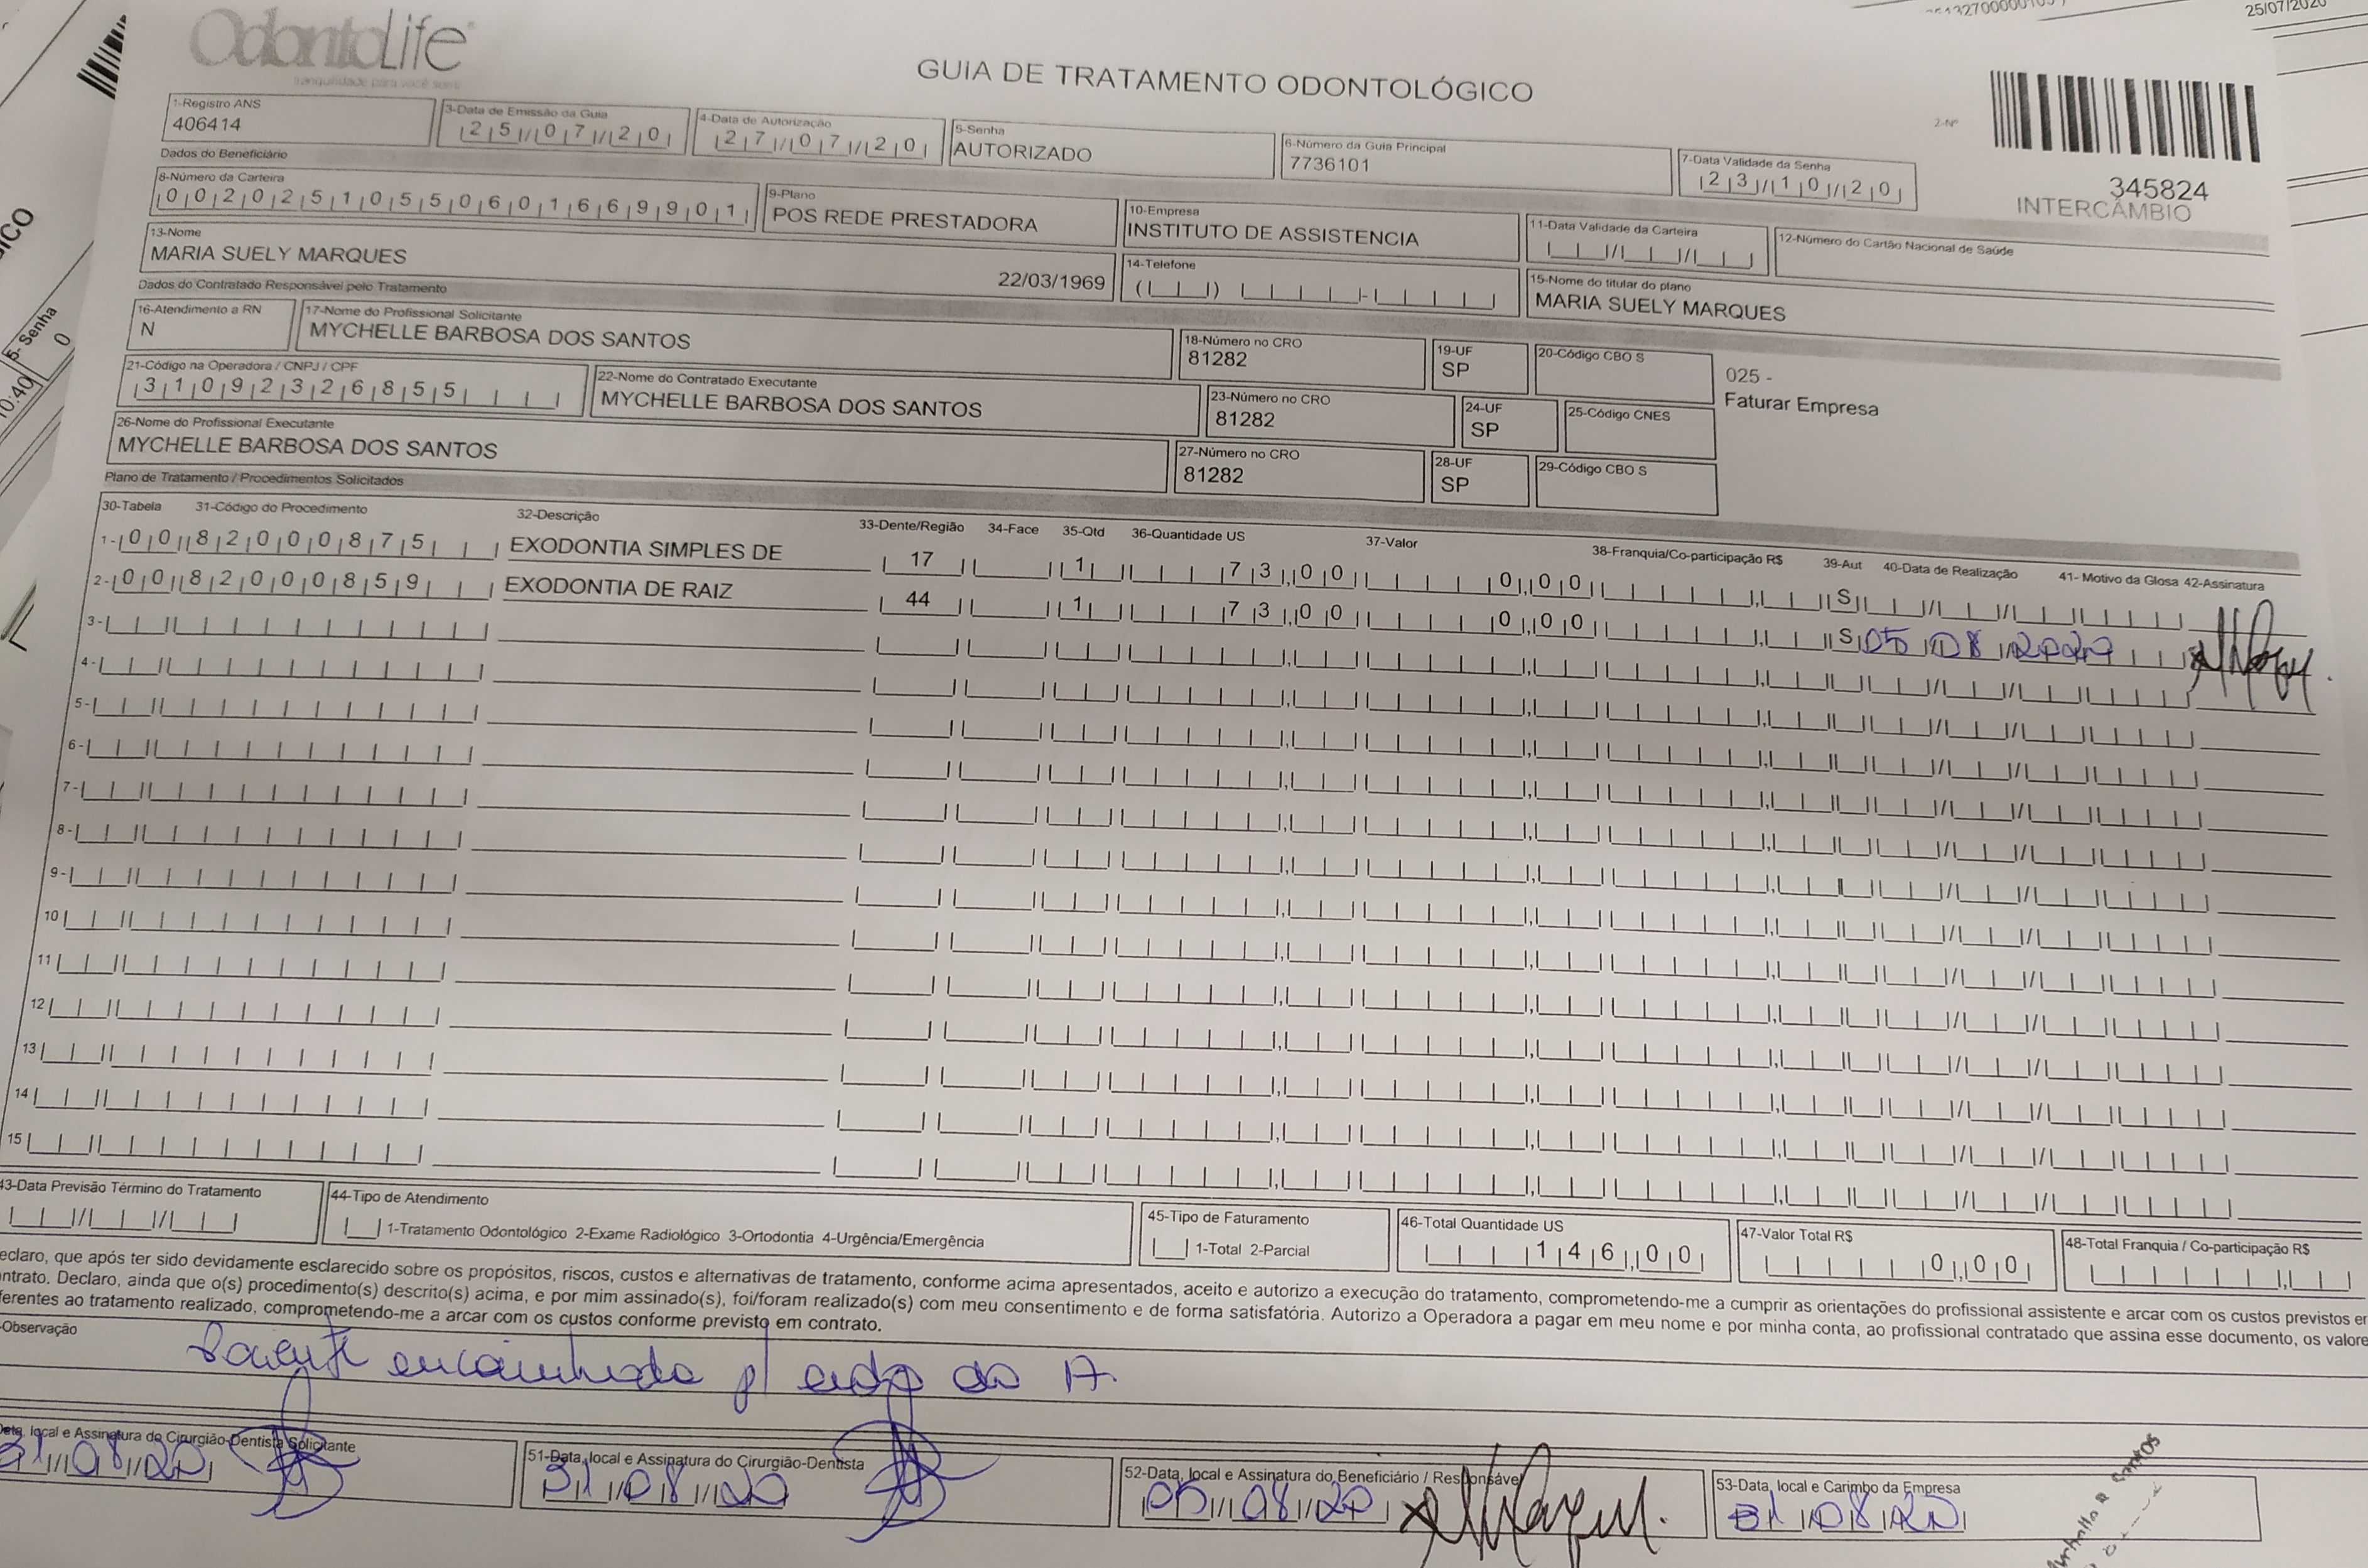 25/07/2020
OdontoLife
tranquilidade para você sorrir
GUIA DE TRATAMENTO ODONTOLÓGICO
2-Nº
345824
INTERCÂMBIO
1-Registro ANS
406414
3-Data de Emissão da Guia
25/07/20
4-Data de Autorização
27/07/20
5-Senha
AUTORIZADO
6-Número da Guia Principal
7736101
7-Data Validade da Senha
23/10/20
Dados do Beneficiário
8-Número da Carteira
00202510550601669901
9-Plano
POS REDE PRESTADORA
10-Empresa
INSTITUTO DE ASSISTENCIA
11-Data Validade da Carteira
12-Número do Cartão Nacional de Saúde
13-Nome
MARIA SUELY MARQUES
22/03/1969
14-Telefone
15-Nome do titular do plano
MARIA SUELY MARQUES
Dados do Contratado Responsável pelo Tratamento
16-Atendimento a RN
N
17-Nome do Profissional Solicitante
MYCHELLE BARBOSA DOS SANTOS
18-Número no CRO
81282
19-UF
SP
20-Código CBO S
025 -
Faturar Empresa
21-Código na Operadora / CNPJ / CPF
31092326855
22-Nome do Contratado Executante
MYCHELLE BARBOSA DOS SANTOS
23-Número no CRO
81282
24-UF
SP
25-Código CNES
26-Nome do Profissional Executante
MYCHELLE BARBOSA DOS SANTOS
27-Número no CRO
81282
28-UF
SP
29-Código CBO S
Plano de Tratamento / Procedimentos Solicitados
30-Tabela 31-Código do Procedimento 32-Descrição 33-Dente/Região 34-Face 35-Qtd 36-Quantidade US 37-Valor 38-Franquia/Co-participação R$ 39-Aut 40-Data de Realização 41- Motivo da Glosa 42-Assinatura
1- 00 82000875 EXODONTIA SIMPLES DE 17 1 73,00 0,00 S
2- 00 82000859 EXODONTIA DE RAIZ 44 1 73,00 0,00 S 05/08/2020
3-
4-
5-
6-
7-
8-
9-
10
11
12
13
14
15
43-Data Previsão Término do Tratamento
44-Tipo de Atendimento
1-Tratamento Odontológico 2-Exame Radiológico 3-Ortodontia 4-Urgência/Emergência
45-Tipo de Faturamento
1-Total 2-Parcial
46-Total Quantidade US
146,00
47-Valor Total R$
0,00
48-Total Franquia / Co-participação R$
eclaro, que após ter sido devidamente esclarecido sobre os propósitos, riscos, custos e alternativas de tratamento, conforme acima apresentados, aceito e autorizo a execução do tratamento, comprometendo-me a cumprir as orientações do profissional assistente e arcar com os custos previstos em
ntrato. Declaro, ainda que o(s) procedimento(s) descrito(s) acima, e por mim assinado(s), foi/foram realizado(s) com meu consentimento e de forma satisfatória. Autorizo a Operadora a pagar em meu nome e por minha conta, ao profissional contratado que assina esse documento, os valore
ferentes ao tratamento realizado, comprometendo-me a arcar com os custos conforme previsto em contrato.
-Observação
Paciente encaminhada p/ endo do 17.
Data, local e Assinatura do Cirurgião-Dentista Solicitante
31/08/20
51-Data, local e Assinatura do Cirurgião-Dentista
31/08/20
52-Data, local e Assinatura do Beneficiário / Responsável
05/08/20
53-Data, local e Carimbo da Empresa
31/08/20
ICO
5- Senha
0
10:40